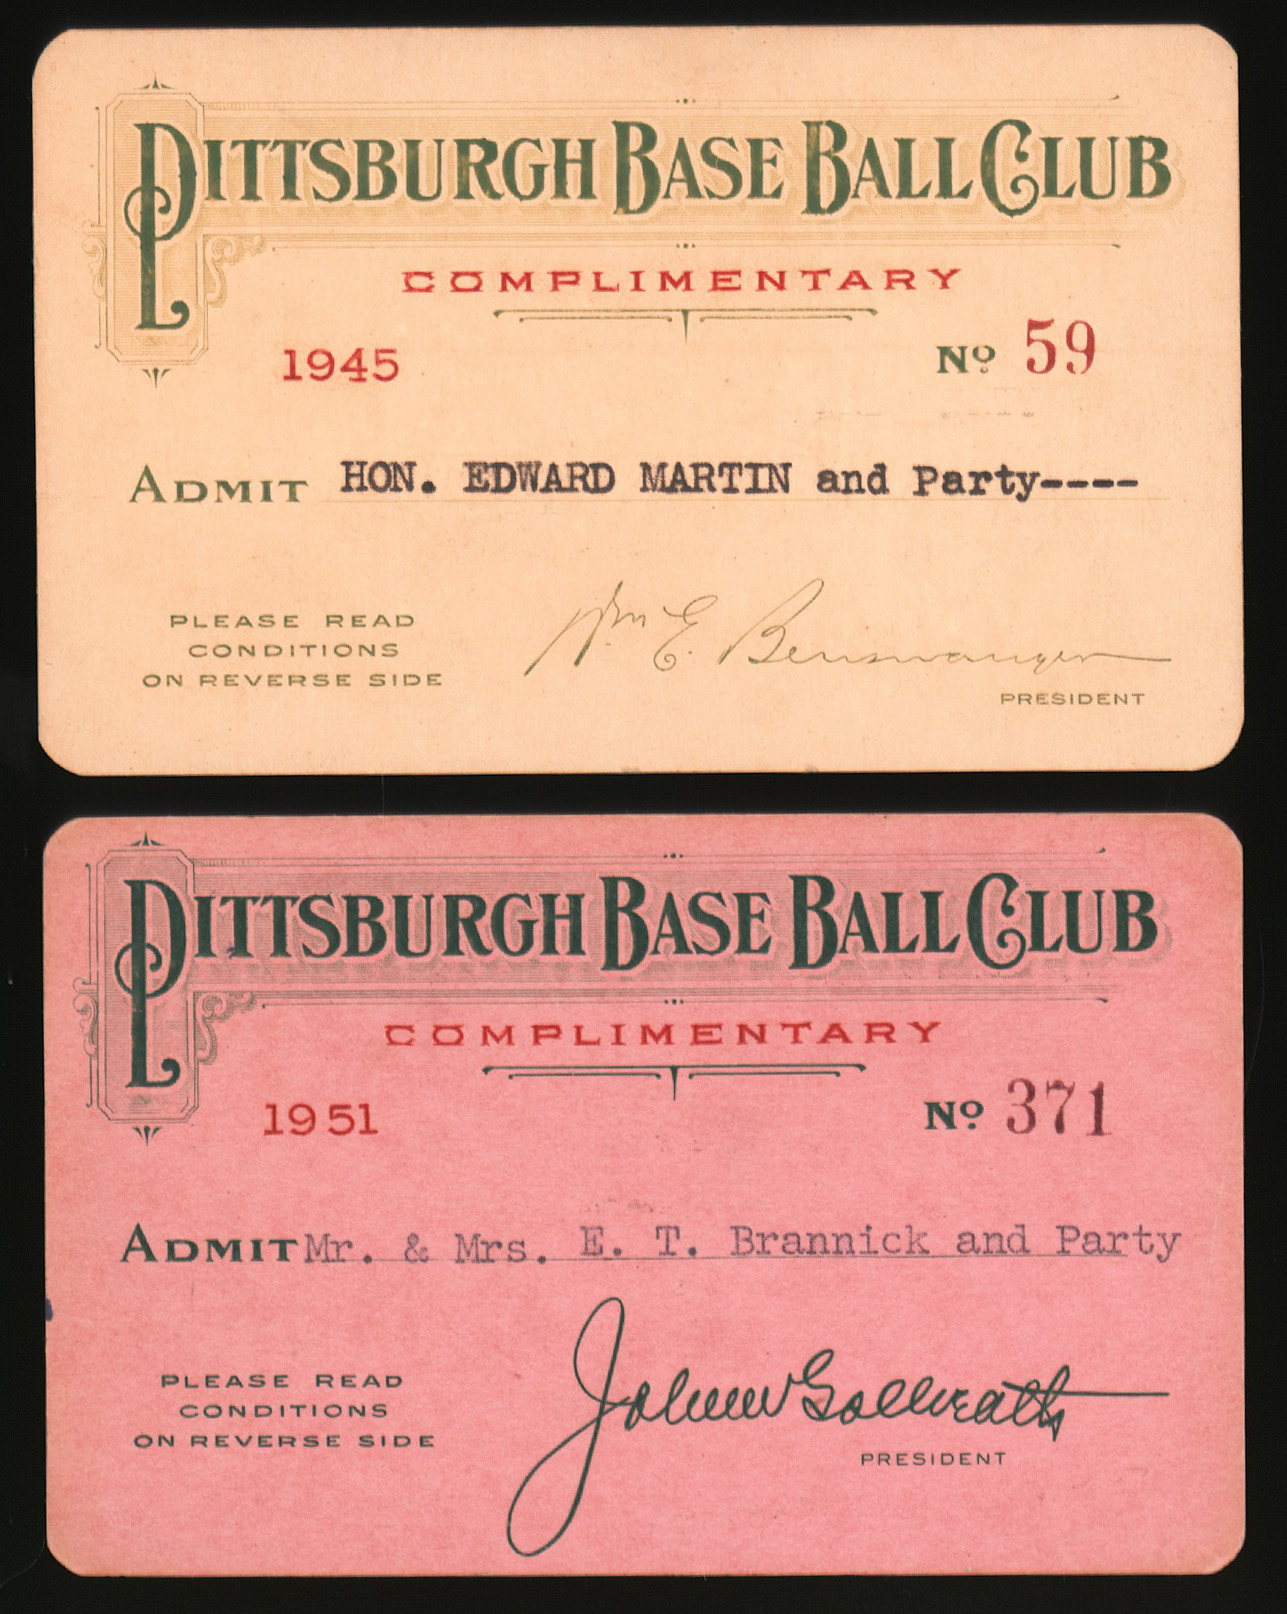 PITTSBURGH BASE BALL CLUB
COMPLIMENTARY
1945 No 59
ADMIT HON. EDWARD MARTIN and Party----
Wm E. Benswanger
PLEASE READ
CONDITIONS
ON REVERSE SIDE
PRESIDENT
PITTSBURGH BASE BALL CLUB
COMPLIMENTARY
1951 No 371
ADMIT Mr. & Mrs. E. T. Brannick and Party
John W Galbreath
PLEASE READ
CONDITIONS
ON REVERSE SIDE
PRESIDENT